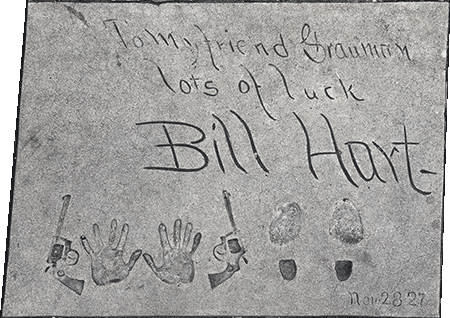 To My friend Grauman
lots of luck
Bill Hart-
Nov. 28 27